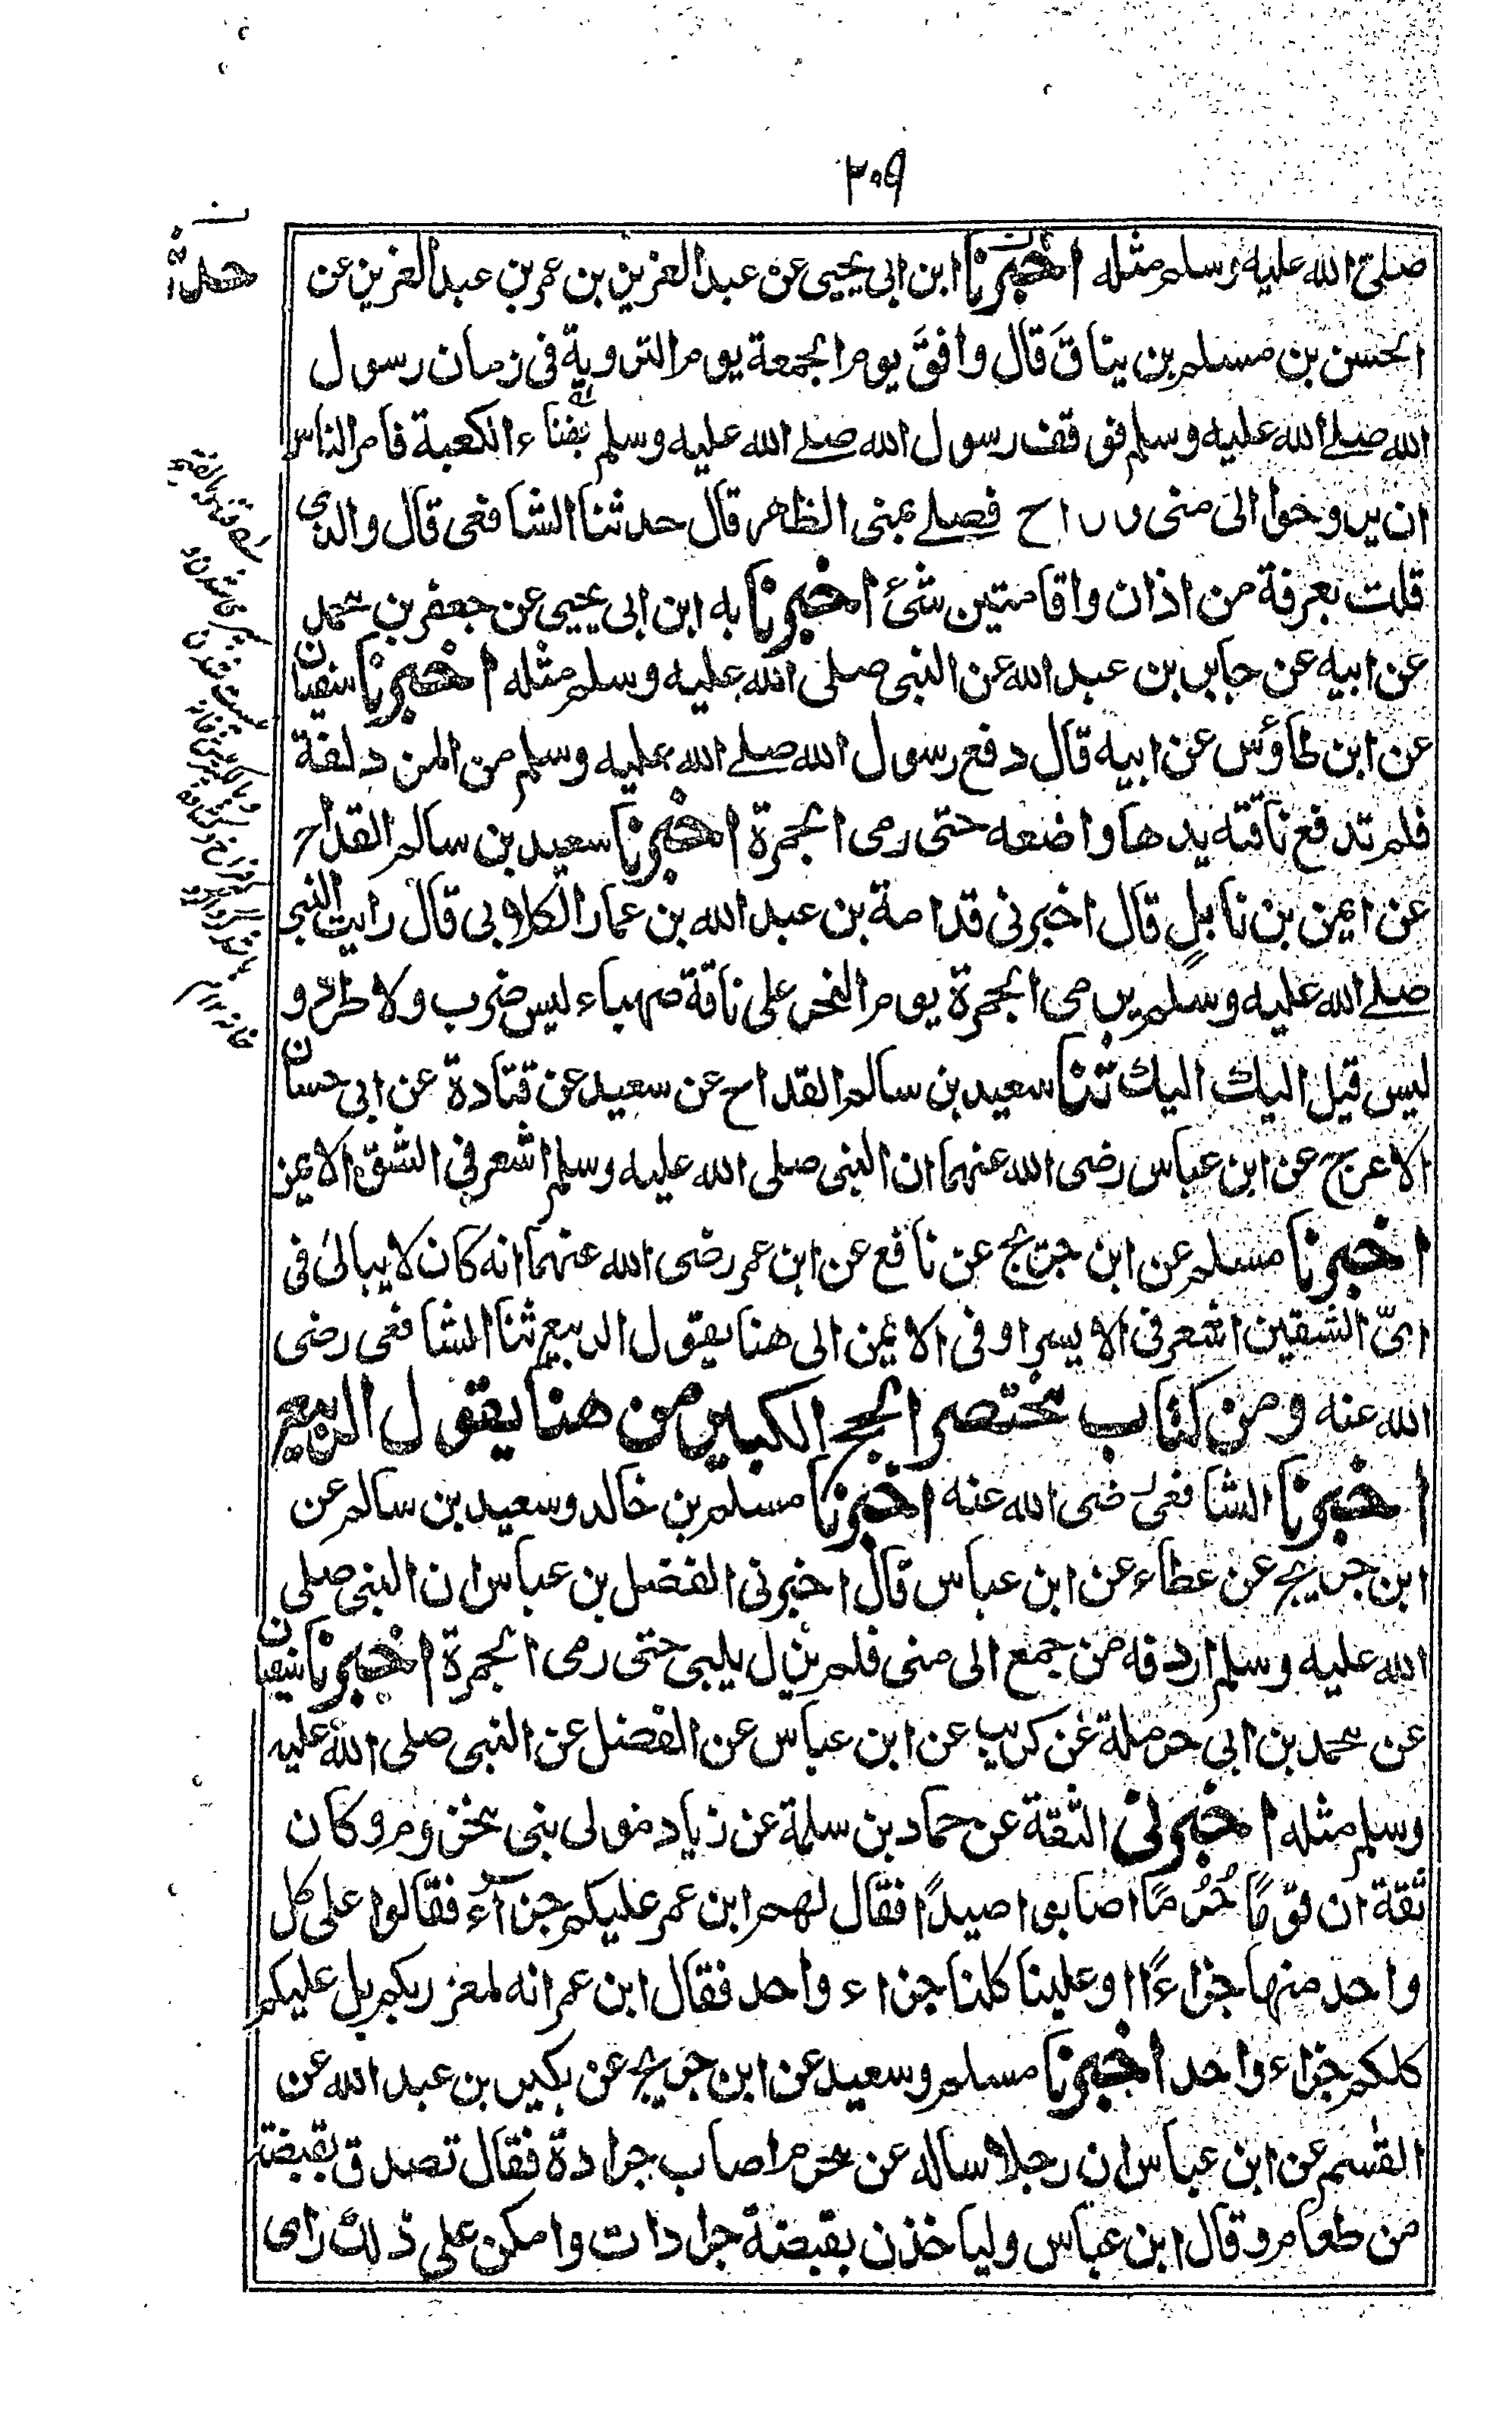 ٣٠٩
صلى الله عليه وسلم مثله اخبرنا ابن ابي يحيى عن عبد العزيز بن عمر بن عبد العزيز عن
الحسن بن مسلم بن يناق قال وافق يوم الجمعة يوم التروية في زمان رسول
الله صلے الله عليه وسلم فوقف رسول الله صلے الله عليه وسلم بفناء الكعبة فامر الناس
ان يروحوا الى منى وراح فصلے بمنى الظهر قال حدثنا الشافعى قال والذي
قلت بعرفة من اذان واقامتين شئ اخبرنا به ابن ابى يحيى عن جعفر بن محمد
عن ابيه عن جابر بن عبد الله عن النبى صلى الله عليه وسلم مثله اخبرنا سفيان
عن ابن طاؤس عن ابيه قال دفع رسول الله صلے الله عليه وسلم من المزدلفة
فلم تدفع ناقته يدها واضعه حتى رمى الجمرة اخبرنا سعيد بن سالم القداح
عن ايمن بن نابل قال اخبرنى قدامة بن عبد الله بن عمار الكلابى قال رايت النبى
صلے الله عليه وسلم يرمى الجمرة يوم النحر على ناقة صهباء ليس ضرب ولا طرد و
ليس قيل اليك اليك ثنا سعيد بن سالم القداح عن سعيد عن قتادة عن ابى حسان
الاعرج عن ابن عباس رضى الله عنهما ان النبى صلى الله عليه وسلم اشعر في الشق الايمن
اخبرنا مسلم عن ابن جريج عن نافع عن ابن عمر رضى الله عنهما انه كان لا يبالى فى
اىّ الشقين اشعر فى الايسر او فى الايمن الى هنا يقول الربيع ثنا الشافعى رضى
الله عنه ومن كتاب مختصر الحج الكبير من هنا يقول الربيع
اخبرنا الشافعى رضى الله عنه اخبرنا مسلم بن خالد وسعيد بن سالم عن
ابن جريج عن عطاء عن ابن عباس قال اخبرنى الفضل بن عباس ان النبى صلى
الله عليه وسلم اردفه من جمع الى منى فلم يزل يلبى حتى رمى الجمرة اخبرنا سفيان
عن محمد بن ابى حرملة عن كريب عن ابن عباس عن الفضل عن النبى صلى الله عليه
وسلم مثله اخبرنى الثقة عن حماد بن سلمة عن زياد مولى بنى مخزوم وكان
ثقة ان قومًا حُرُمًا اصابوا صيدًا فقال لهم ابن عمر عليكم جزاءٌ فقالوا على كل
واحد منها جزاءً او علينا كلنا جزاء واحد فقال ابن عمر انه لمغرر بكم بل عليكم
كلكم جزاء واحد اخبرنا مسلم وسعيد عن ابن جريج عن بكير بن عبد الله عن
القسم عن ابن عباس ان رجلا ساله عن محرم اصاب جرادة فقال تصدق بقبضة
من طعام وقال ابن عباس وليا خذن بقبضة جرادات وامكن على ذلك راى